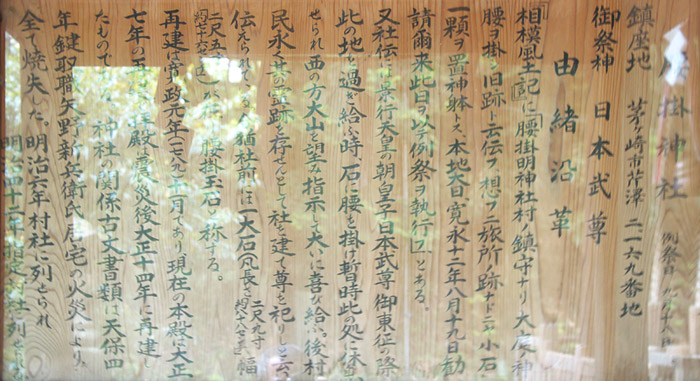 腰掛神社 例祭日
鎮座地 茅ヶ崎市芹沢 二一六九番地
御祭神 日本武尊
由緒沿革
「相模風土記」に腰掛明神社村ノ鎮守ナリ 大庭ノ神
腰ヲ掛シ旧跡ト云伝フ想フニ旅所ノ跡ナドニヤ小石
一顆ヲ置神躰トス、本地大日寛永十二年八月十九日勧
請爾来此日ヲ以テ例祭ヲ執行フ」とある。
又社伝には景行天皇の朝皇子日本武尊 御東征の際
此の地を過ぎ給ふ時、石に腰を掛け暫時此処に休
せられ西の方大山を望み指示して大いに喜び給ふ。後村
民永く其の霊跡を存せんとして社を建て尊を祀りしと云
伝えられている。猶社前には一大石(凡長さ 二尺九寸 幅
二尺五 腰掛玉石と称する。
再建は 政元年(一七八九)十一月であり現在の本殿は大正
七年の 拝殿は震災後大正十四年に再建し
たもので 神社の関係古文書類は天保四
年鍵取職矢野新兵衛氏居宅の火災により
全て焼失した。明治六年村社に列せられ
明治四十二年指定 列せられる